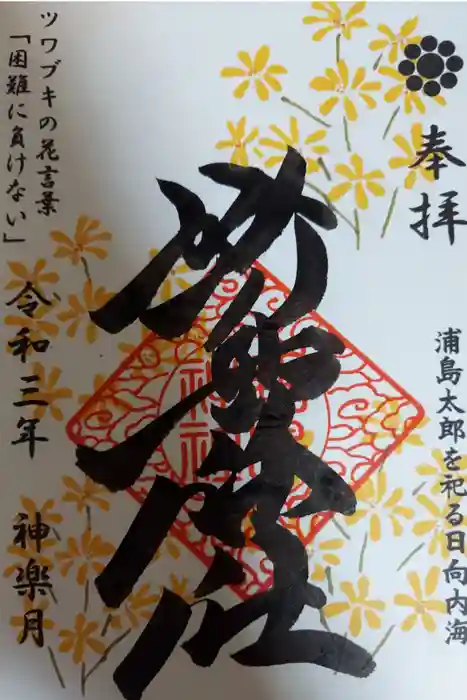 奉拝
浦島太郎を祀る日向内海
ツワブキの花言葉
「困難に負けない」
令和三年 神楽月